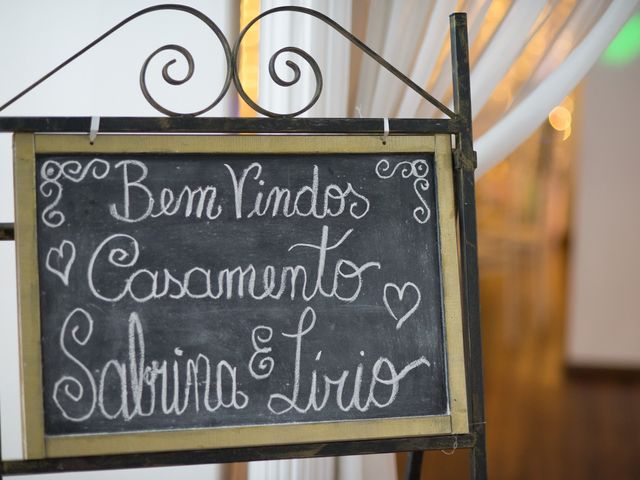 Bem Vindos
Casamento
Sabrina & Lírio